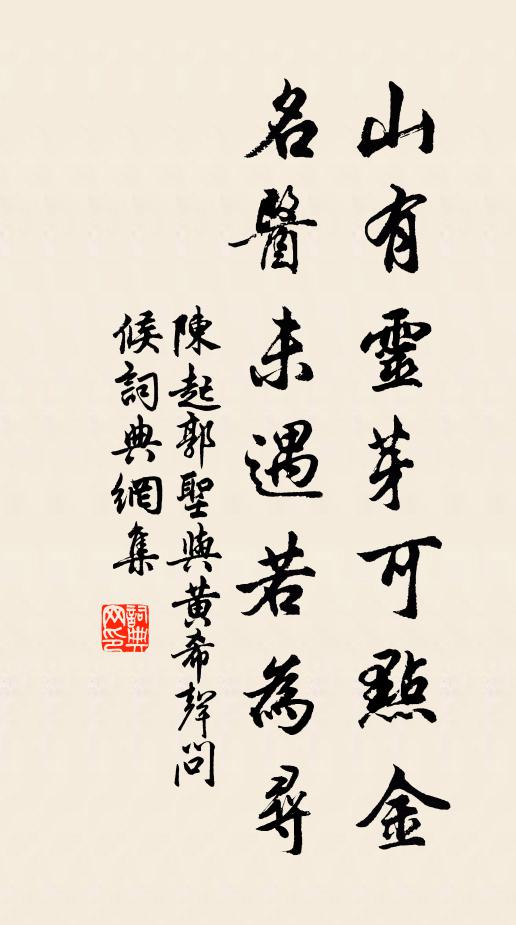 山有靈芽可點金
名醫未遇若為尋
陳起郭聖與黃希聲問
候詞典網集
詞典
网印